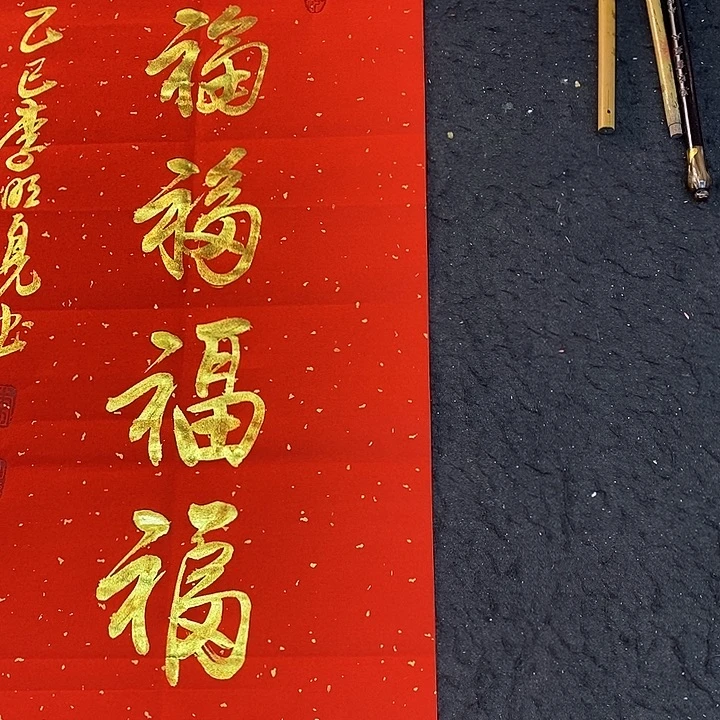 福福福福
乙巳李明見书